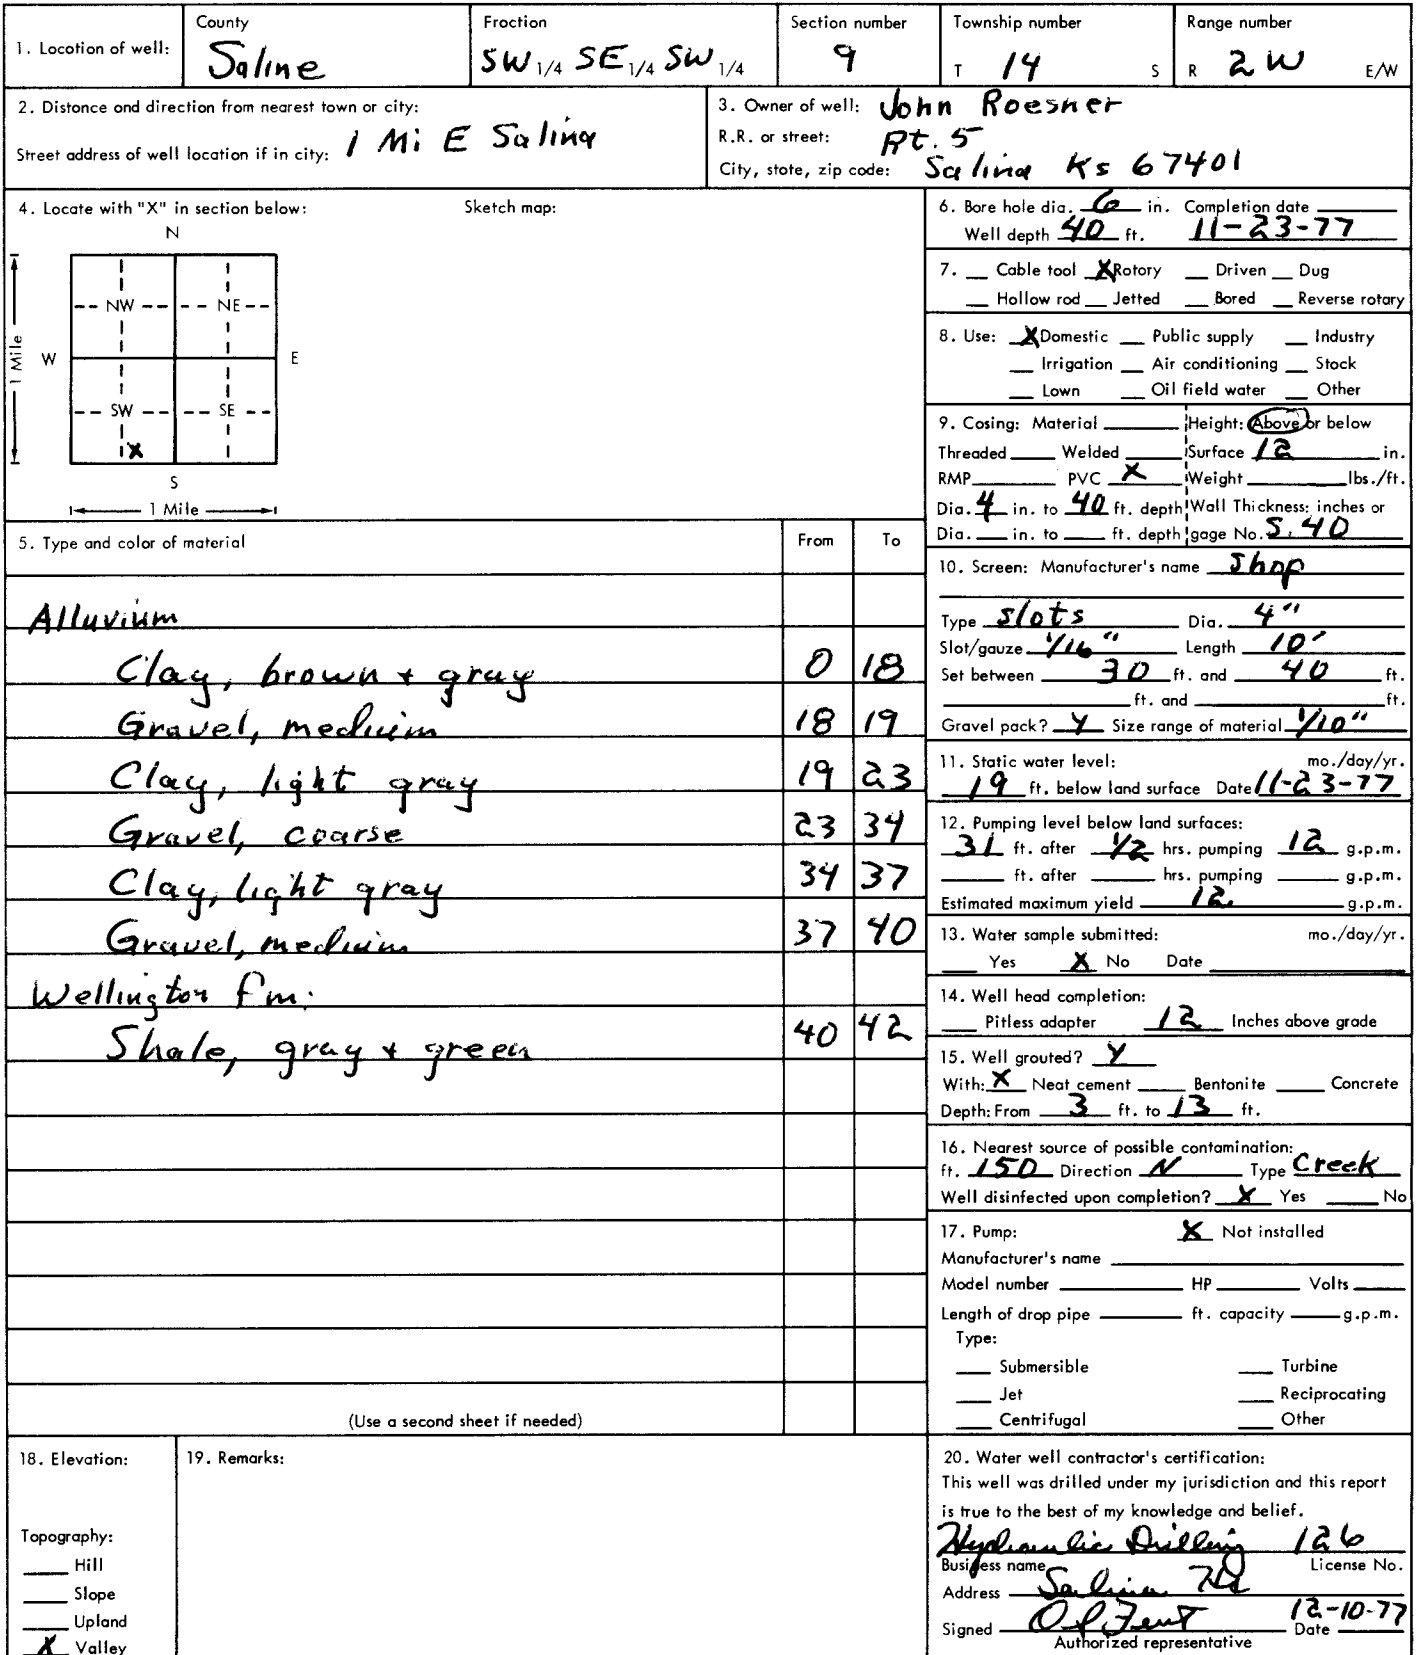 1. Location of well:
County
Saline
Fraction
SW 1/4 SE 1/4 SW 1/4
Section number
9
Township number
T 14 S
Range number
R 2 W E/W
2. Distance and direction from nearest town or city:
1 Mi E Salina
Street address of well location if in city:
3. Owner of well: John Roesner
R.R. or street: Rt. 5
City, state, zip code: Salina Ks 67401
4. Locate with "X" in section below:
Sketch map:
N
NW NE
W E
1 Mile
SW SE
X
S
1 Mile
5. Type and color of material From To
Alluvium
Clay, brown + gray 0 18
Gravel, medium 18 19
Clay, light gray 19 23
Gravel, coarse 23 34
Clay, light gray 34 37
Gravel, medium 37 40
Wellington fm.
Shale, gray + green 40 42
(Use a second sheet if needed)
6. Bore hole dia. 6 in. Completion date
Well depth 40 ft. 11-23-77
7. __ Cable tool X Rotory __ Driven __ Dug
__ Hollow rod __ Jetted __ Bored __ Reverse rotary
8. Use: X Domestic __ Public supply __ Industry
__ Irrigation __ Air conditioning __ Stock
__ Lown __ Oil field water __ Other
9. Casing: Material ____ Height: Above or below
Threaded ____ Welded ____ Surface 12 in.
RMP ____ PVC X Weight ____ lbs./ft.
Dia. 4 in. to 40 ft. depth Wall Thickness: inches or
Dia. ___ in. to ___ ft. depth gage No. S. 40
10. Screen: Manufacturer's name Shop
Type slots Dia. 4"
Slot/gauze 1/16" Length 10'
Set between 30 ft. and 40 ft.
____ ft. and ____ ft.
Gravel pack? Y Size range of material 1/10"
11. Static water level: mo./day/yr.
19 ft. below land surface Date 11-23-77
12. Pumping level below land surfaces:
31 ft. after 1/2 hrs. pumping 12 g.p.m.
____ ft. after ____ hrs. pumping ____ g.p.m.
Estimated maximum yield 12 g.p.m.
13. Water sample submitted: mo./day/yr.
___ Yes X No Date ____
14. Well head completion:
___ Pitless adapter 12 Inches above grade
15. Well grouted? Y
With: X Neat cement ____ Bentonite ____ Concrete
Depth: From 3 ft. to 13 ft.
16. Nearest source of possible contamination:
ft. 150 Direction N Type Creek
Well disinfected upon completion? X Yes ____ No
17. Pump: X Not installed
Manufacturer's name ____
Model number ____ HP ____ Volts ____
Length of drop pipe ____ ft. capacity ____ g.p.m.
Type:
___ Submersible ___ Turbine
___ Jet ___ Reciprocating
___ Centrifugal ___ Other
18. Elevation:
Topography:
___ Hill
___ Slope
___ Upland
X Valley
19. Remarks:
20. Water well contractor's certification:
This well was drilled under my jurisdiction and this report
is true to the best of my knowledge and belief.
Hydraulic Drilling 126
Business name License No.
Address Salina Ks
Signed O P Fent Date 12-10-77
Authorized representative